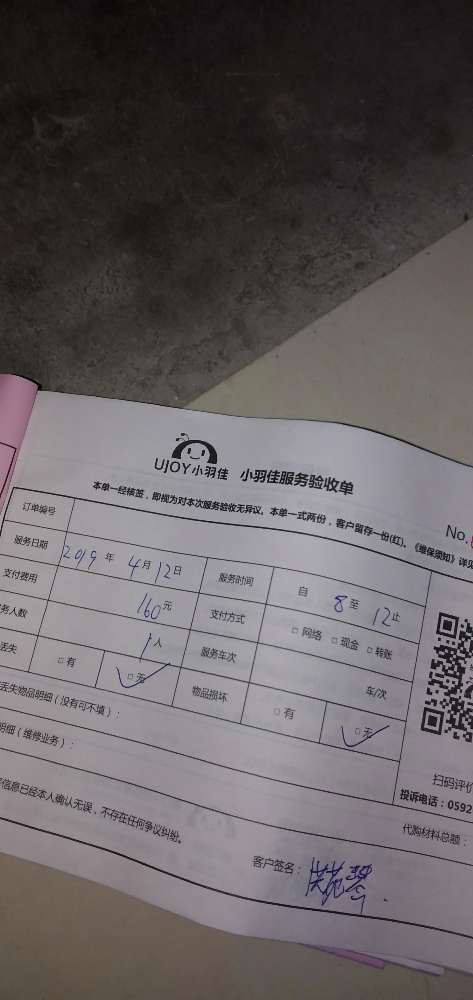 UJOY小羽佳 小羽佳服务验收单
本单一经核签，即视为对本次服务验收无异议。本单一式两份，客户留存一份(红)。《维保须知》详见
No.
订单编号
服务日期 2019 年 4月 12日 服务时间 自 8 至 12止
支付费用 160元 支付方式 □ 网络 □ 现金 □ 转账
务人数 1人 服务车次 车/次
丢失 □ 有 □ 无 物品损坏 □ 有 □ 无
丢失物品明细（没有可不填）：
明细（维修业务）：
扫码评价
投诉电话：0592
代购材料总额：
信息已经本人确认无误，不存在任何争议纠纷。
客户签名：